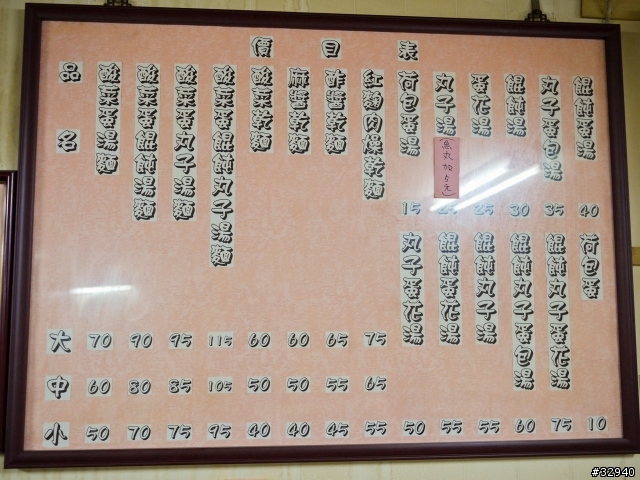 價目表
品名
大
中
小
酸菜蛋湯麵
70
60
50
酸菜蛋餛飩湯麵
90
80
70
酸菜蛋丸子湯麵
95
85
75
酸菜蛋餛飩丸子湯麵
115
105
95
酸菜乾麵
60
50
40
麻醬乾麵
60
50
40
酢醬乾麵
65
55
45
紅麴肉燥乾麵
75
65
55
荷包蛋湯
15
丸子湯
(魚丸加5元)
25
蛋花湯
25
餛飩湯
30
丸子蛋包湯
35
餛飩蛋湯
40
丸子蛋花湯
50
餛飩蛋花湯
55
餛飩丸子湯
55
餛飩丸子蛋包湯
60
餛飩丸子蛋花湯
75
荷包蛋
10
#32940